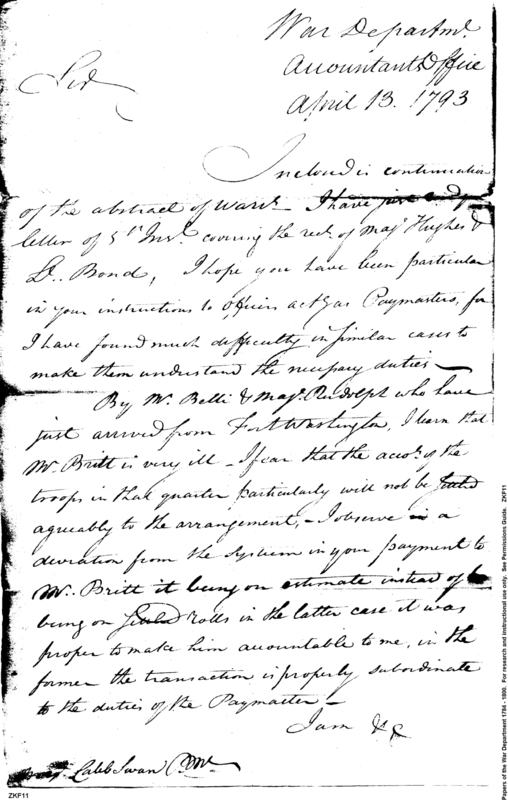 War Departmt.
Accountants Office
April 13. 1793
Sir
Inclosed is continuation
of the abstract of warts. I have just recd yr
letter of 5th Inst. covering the rect. of majr Hughes &
Lt. Bond, I hope you have been particular
in your instructions to officers actg as Paymasters, for
I have found much difficulty in similar cases to
make them understand the necessary duties —
By Mr. Belli & Majr. Rudolph who have
just arrived from Fort Washington, I learn that
Mr. Britt is very ill - I fear that the accots. of the
troops in that quarter particularly will not be settled
agreeably to the arrangement, - I observe in a
deviation from the System in your payment to
Mr. Britt it being on estimate instead of
being on settled rolls in the latter case it was
proper to make him accountable to me, in the
former the transaction is properly subordinate
to the duties of the Paymaster —
I am &c
Caleb Swan P.Mr.
ZKF11
Papers of the War Department 1784 - 1800. For research and instructional use only. See Permissions Guide. ZKF11